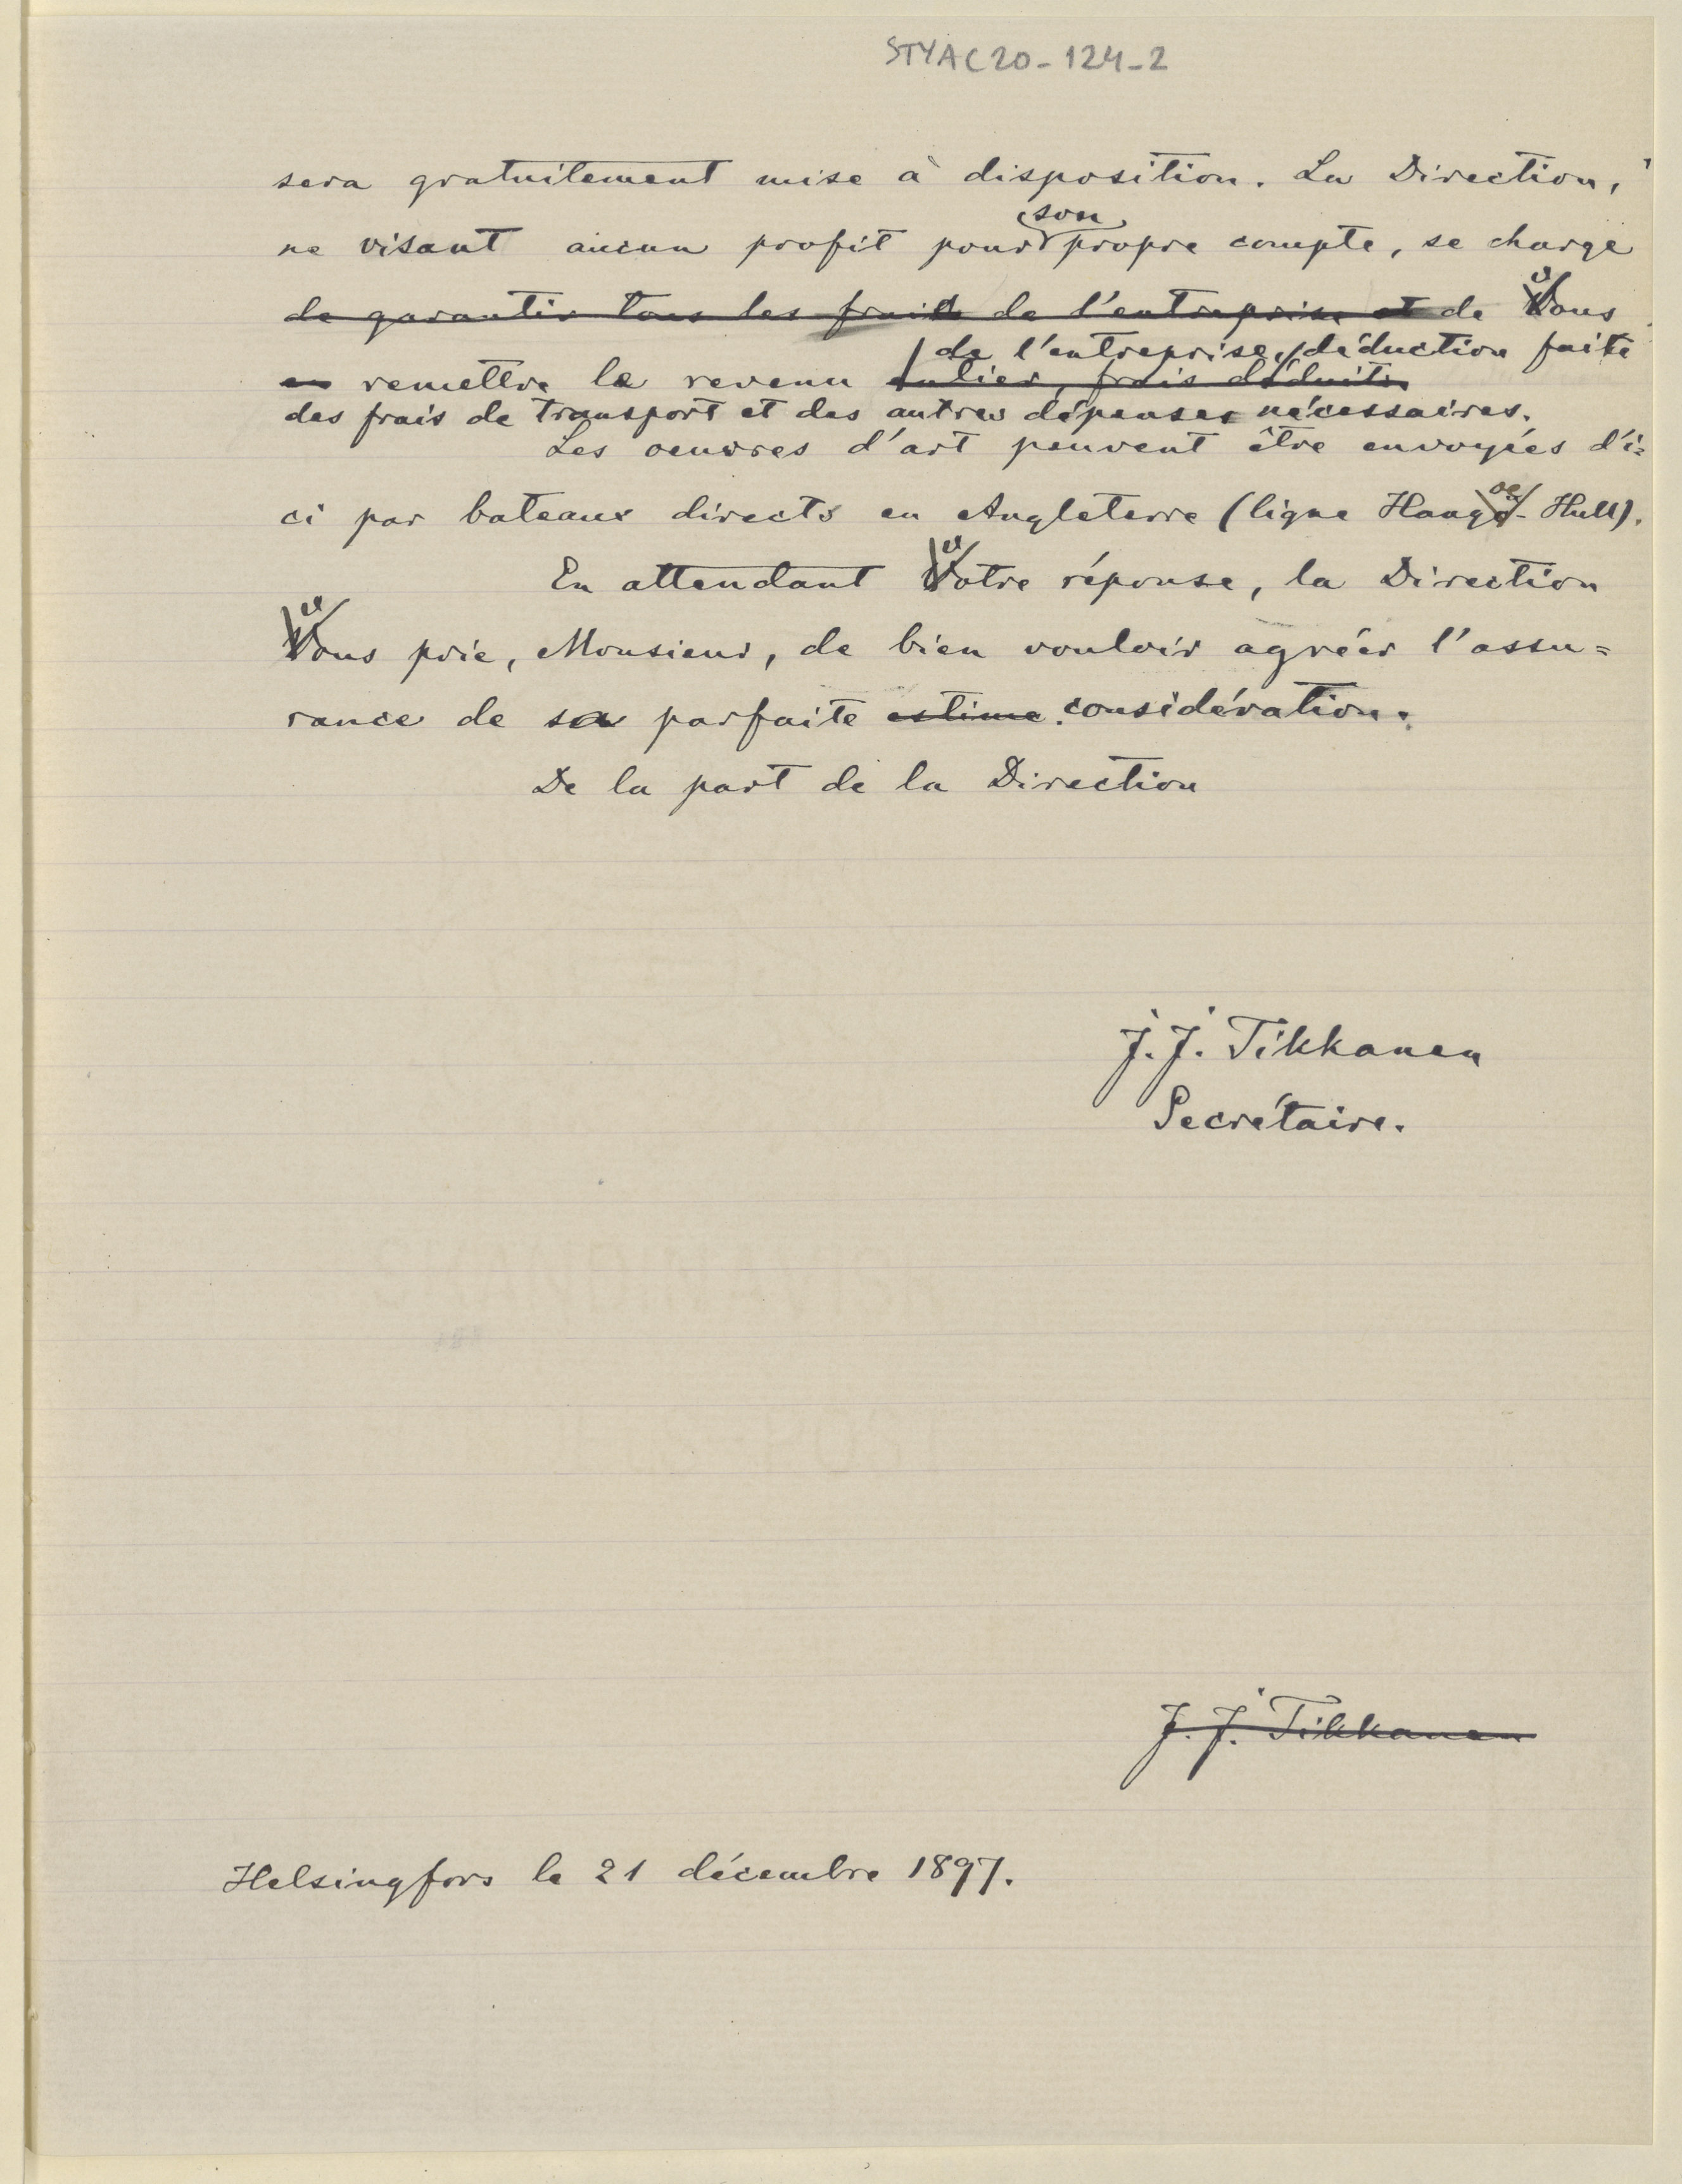 STYAC20-124-2
sera gratuitement mise à disposition. La Direction,
son
ne visant aucun profit pour propre compte, se charge
de garantir tous les frais de l'entreprise et de Vous
de l'entreprise, déduction faite
en remettre le revenu entier, frais déduits
des frais de transport et des autres dépenses nécessaires.
Les oeuvres d'art peuvent être envoyées d'i=
ci par bateaux directs en Angleterre (ligne Hangö-Hull).
En attendant Votre réponse, la Direction
Vous prie, Monsieur, de bien vouloir agréer l'assu=
rance de sa parfaite estime. considération.
De la part de la Direction
J. J. Tikkanen
Secrétaire.
J. J. Tikkanen
Helsingfors le 21 décembre 1897.